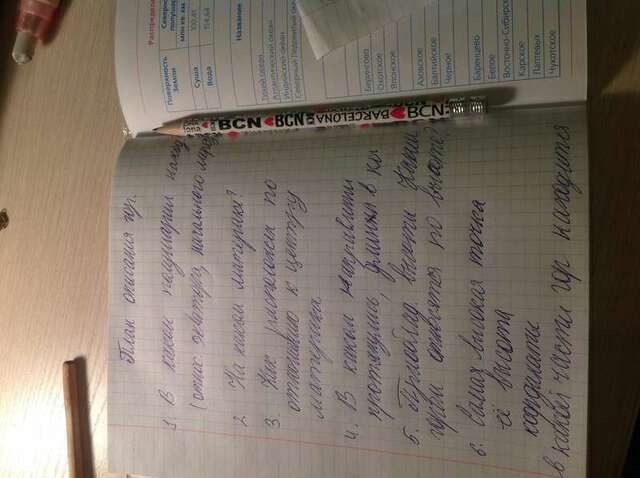 Распреде
Поверхность
Земли
Северно
полушар
млн кв. км
Суша
100,41
Вода
154,64
Название
Тихий океан
Атлантический океан
Индийский океан
Северный Ледовитый океан
Берингово
Охотское
Японское
Азовское
Балтийское
Черное
Баренцево
Белое
Восточно-Сибирск
Карское
Лаптевых
Чукотское
BCN BCN BARCELONA BCN
План описания гор.
1. В каком полушарии наход
(относ экватору, начального мерид
2. На каком материке?
3. Как расположен по
отношению к центру
материка
4. В каком направлении
протянулись, длинна в км
5. Приблизит. высоты Какие
горы становятся по высоте?
6. Самая высокая точка
её высота
координаты
в какой части гор находится